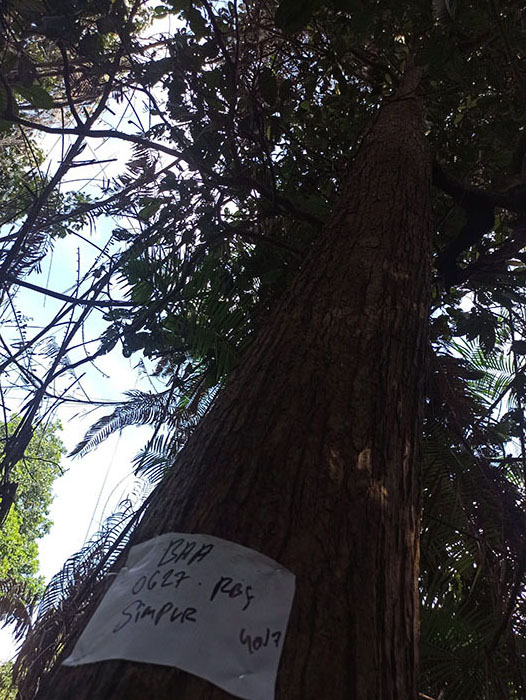 BAA
0627. RBG
SIMPUR
40.7